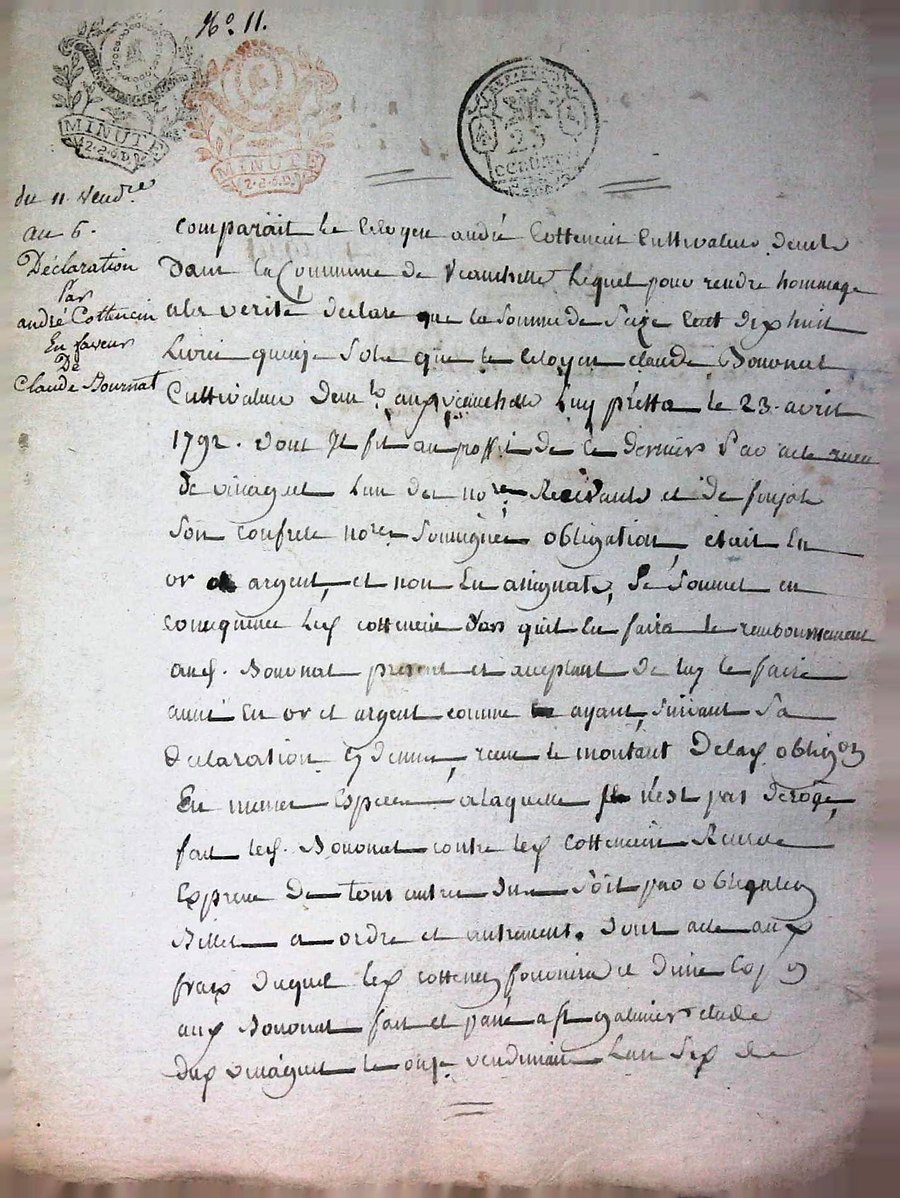 No. 11.
MINUTE
MINUTE
25
du 11 Vendre
an 6.
Déclaration
Par
andré Cottencin
En faveur
De
Claude Bournat
Comparait le Citoyen andré Cottencin Cultivateur demt
dans la Commune de Veauchette lequel pour rendre hommage
a la verité declare que la somme de Seize cent dix huit
Livres quinze Sols que le Citoyen claude Bournat
Cultivateur demt aud Veauchette luy pretta le 23. avril
1792. dont Il fit au proffit de ce dernier Par acte recu
de vinagut lun des nores Recevants et de
Son confrere nores Soussignés obligation, etait En
or et argent, et non En assignats, Se Soumet en
consequence led cottencin dors quil En faira le remboursement
aud. Bournat present et acceptant de luy le faire
aussi En or et argent comme ayant, suivant Sa
declaration cy dessus, recu le montant De lad obligon
En memes Especes, a laquelle Il n'est pas derogé,
fait led. Bournat contre led cottencin Reserve
Expresse De tout autre du Soit par obligation
Billet a ordre et autrement. Dont acte aux
frais duquel led cottencin fournira
aud Bournat fait et passé a St galmier etude
dud vinagut le onze vendemiaire Lan Six de